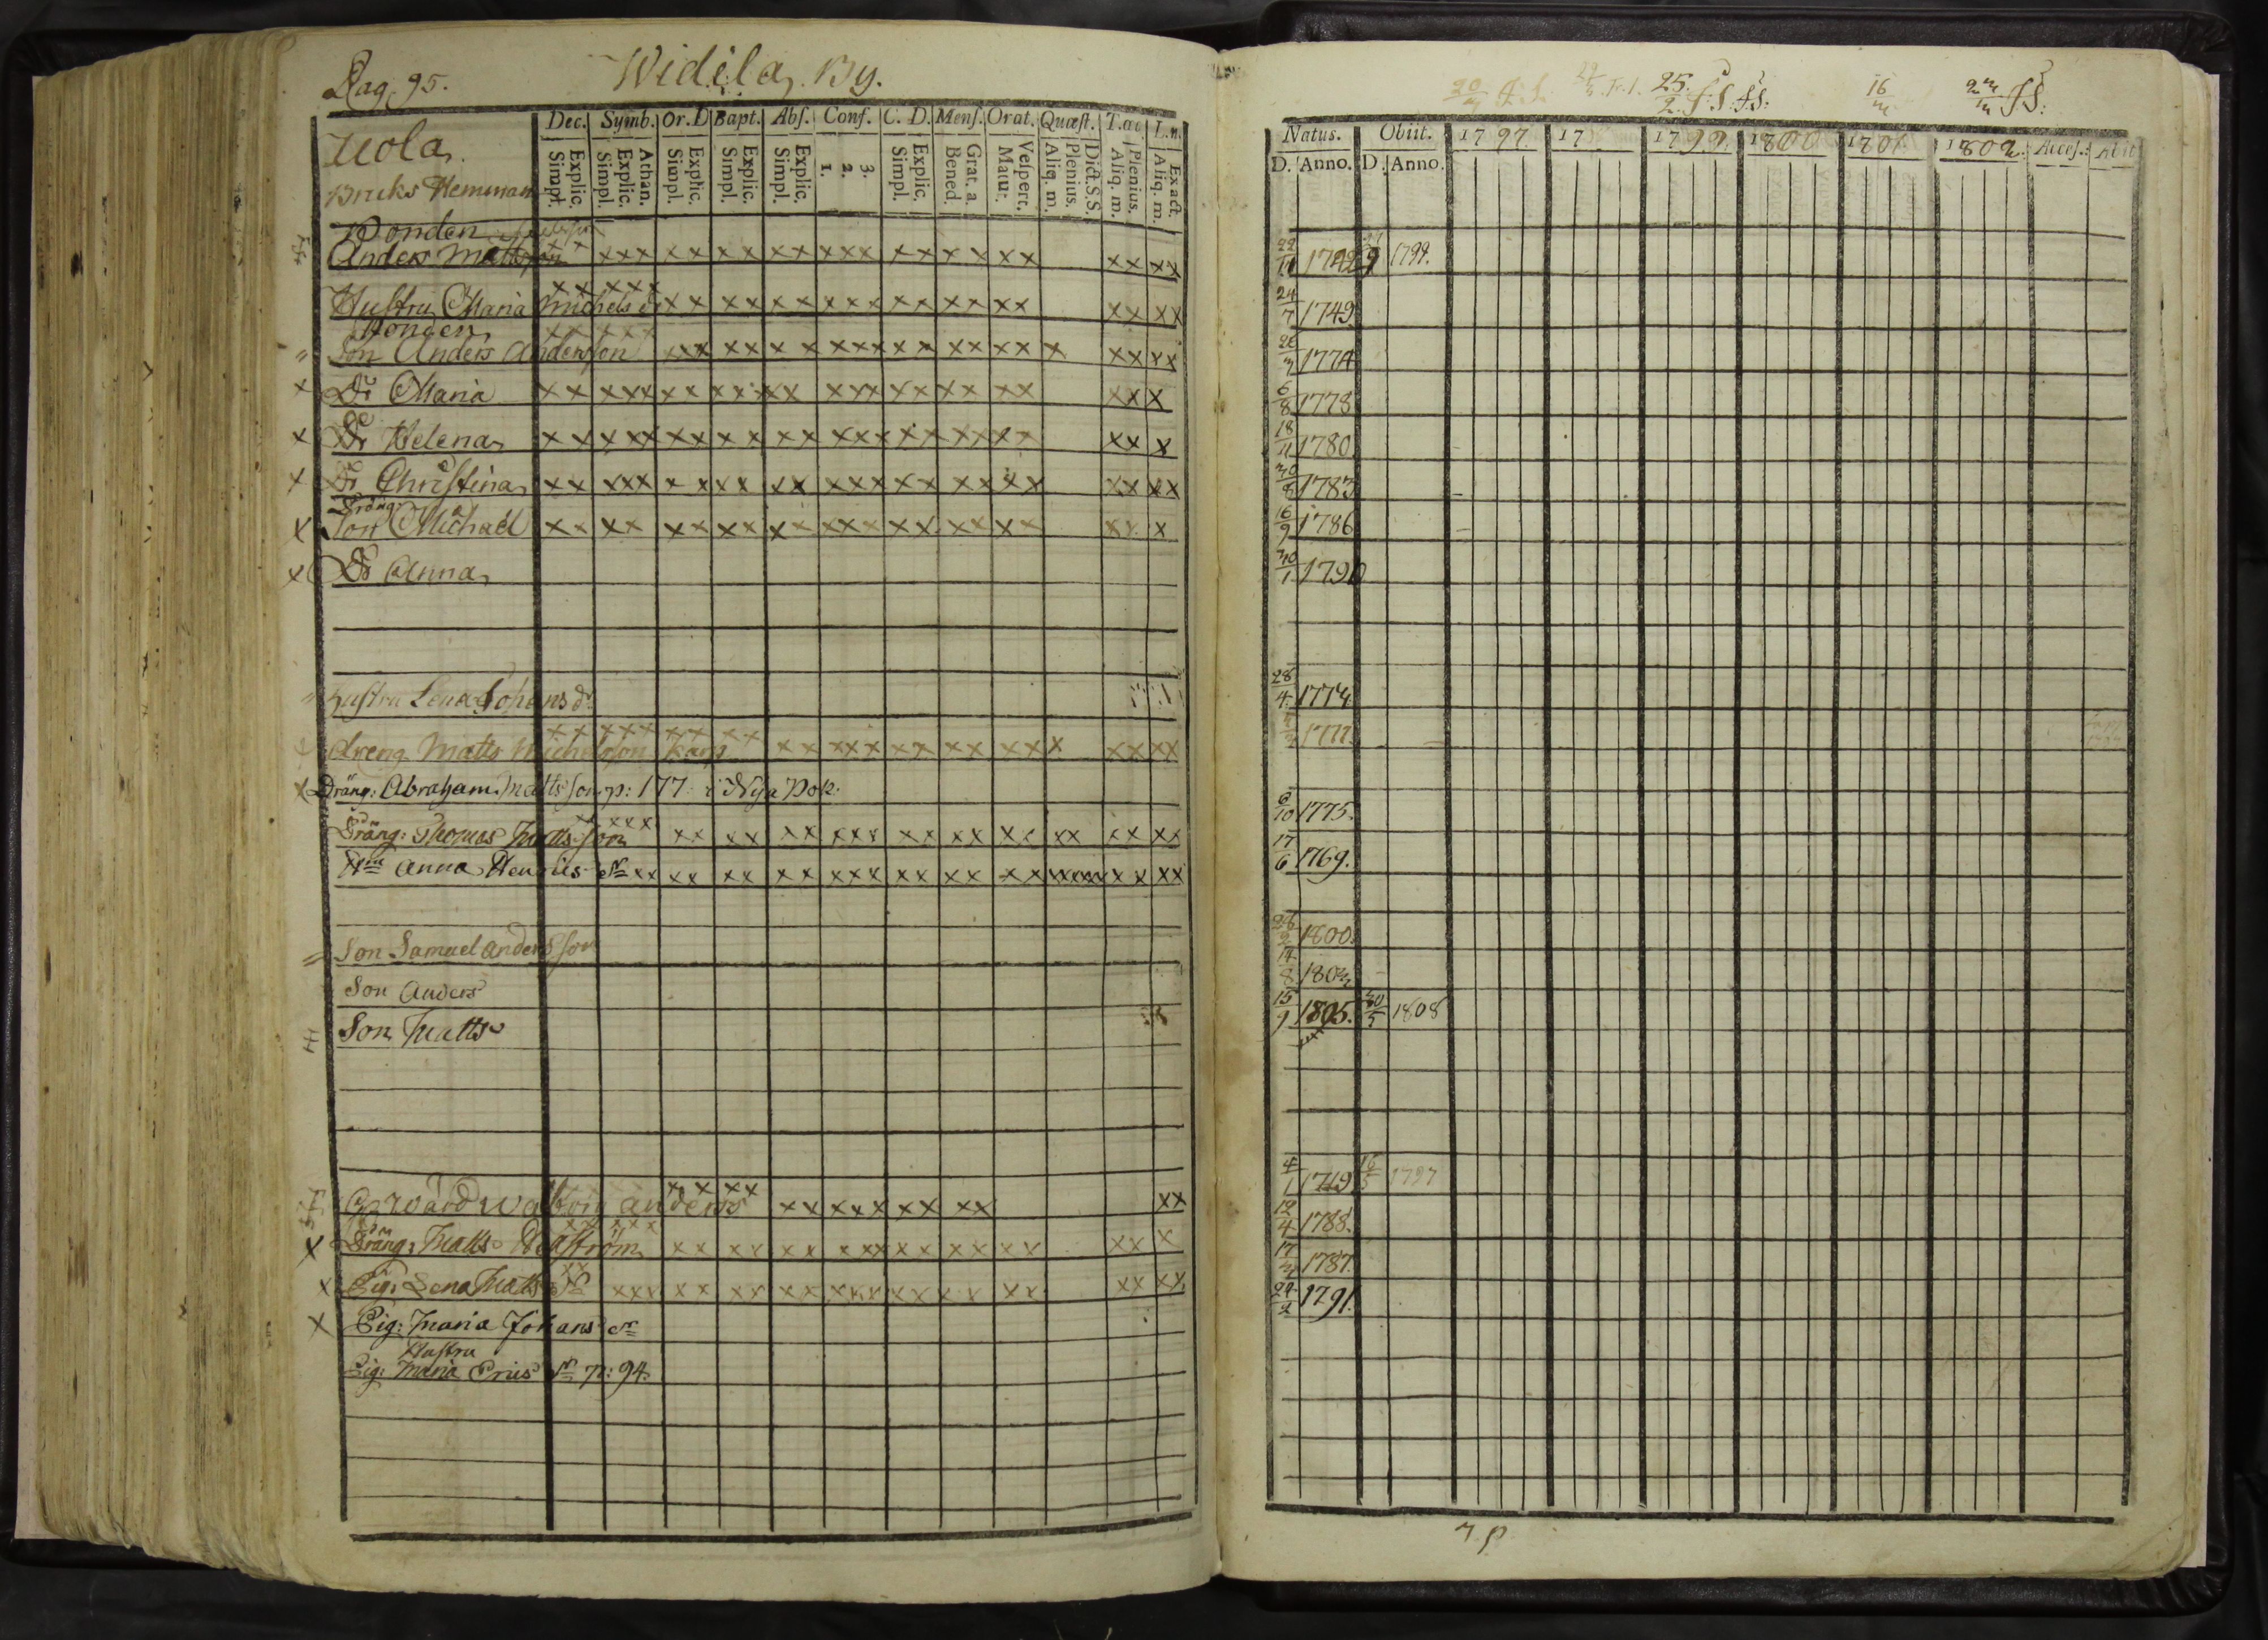 Pag. 95. Widila By.
Uola
Bruks Hemman
Dec. Symb. Or. D Bapt. Abs. Conf. C. D. Mens. Orat. Quæst. T.œ L.n.
Explic. Simpl. Athan. Explic. Simpl. Explic. Simpl. Explic. Simpl. Explic. Simpl. 3. 2. 1. Explic. Simpl. Grat. a. Bened. Vesperc. Matut. Dict. S.S. Plenius. Aliq. m. Plenius. Aliq. m. Exact. Aliq. m.
Bonden
Anders Mattsson xx xxx xx xx xx xxx xx xx xx xx xx
Hustru Maria Michels dr xx xxx xx xx xx xxx xx xx xx xx xx
Bonden
Son Anders Andersson xx xxx xxx xx xx xxx xx xx xx x xx xx
x Dr Maria xx xxx xx xx xx xxx xx xx xx xxx x
x Dr Helena xx xxx xx xx xx xxx xx xx xx xx x
x Dr Christina xx xxx xx xx xx xxx xx xx xx xx xx
Dräng
x Son Michaël xx xx xx xx xx xxx xx xx xx xx x
x Dr Anna
Hustru Lena Johans dr
Dreng Matts Michelsson Karp xx xxx xx xx xx xxx xx xx xx x xx xx
x Dräng: Abraham Mattsson p: 177 i Nya Bok.
Dräng: Thomas Mattsson xx xxx xx xx xx xxx xx xx xx xx xx xx
Anna Henrics dr xx xx xx xx xxx xx xx xx xxxxx xx xx
Son Samuel Andersson
Son Anders
Son Matts
Anders xx xx xx xxx xx xx xx
x Dräng: Matts xx xxx xx xx xx xxx xx xx xx xx x
x Pig: Lena Matts dr xx xxx xx xx xx xxx xx xx xx xx xx
x Pig: Maria Johans dr
Hustru
Pig: Maria Erics dr p: 94.
25/2 16/3
Natus. Obiit. 1797. 17 1799. 1800 1801 1802. Acces. Abit
D. Anno. D. Anno.
1742 1799.
24/7 1749.
1774
6/8 1778
18/11 1780.
30/8 1783
16/9 1786
30/1 1790
28/4 1774
1777.
6/10 1775.
17/6 1769.
1800.
14/8 1803
15/9 1805. 30/5 1808
4/1 1749 16/5 1797
12/4 1788.
17/3 1787.
24/2 1791.